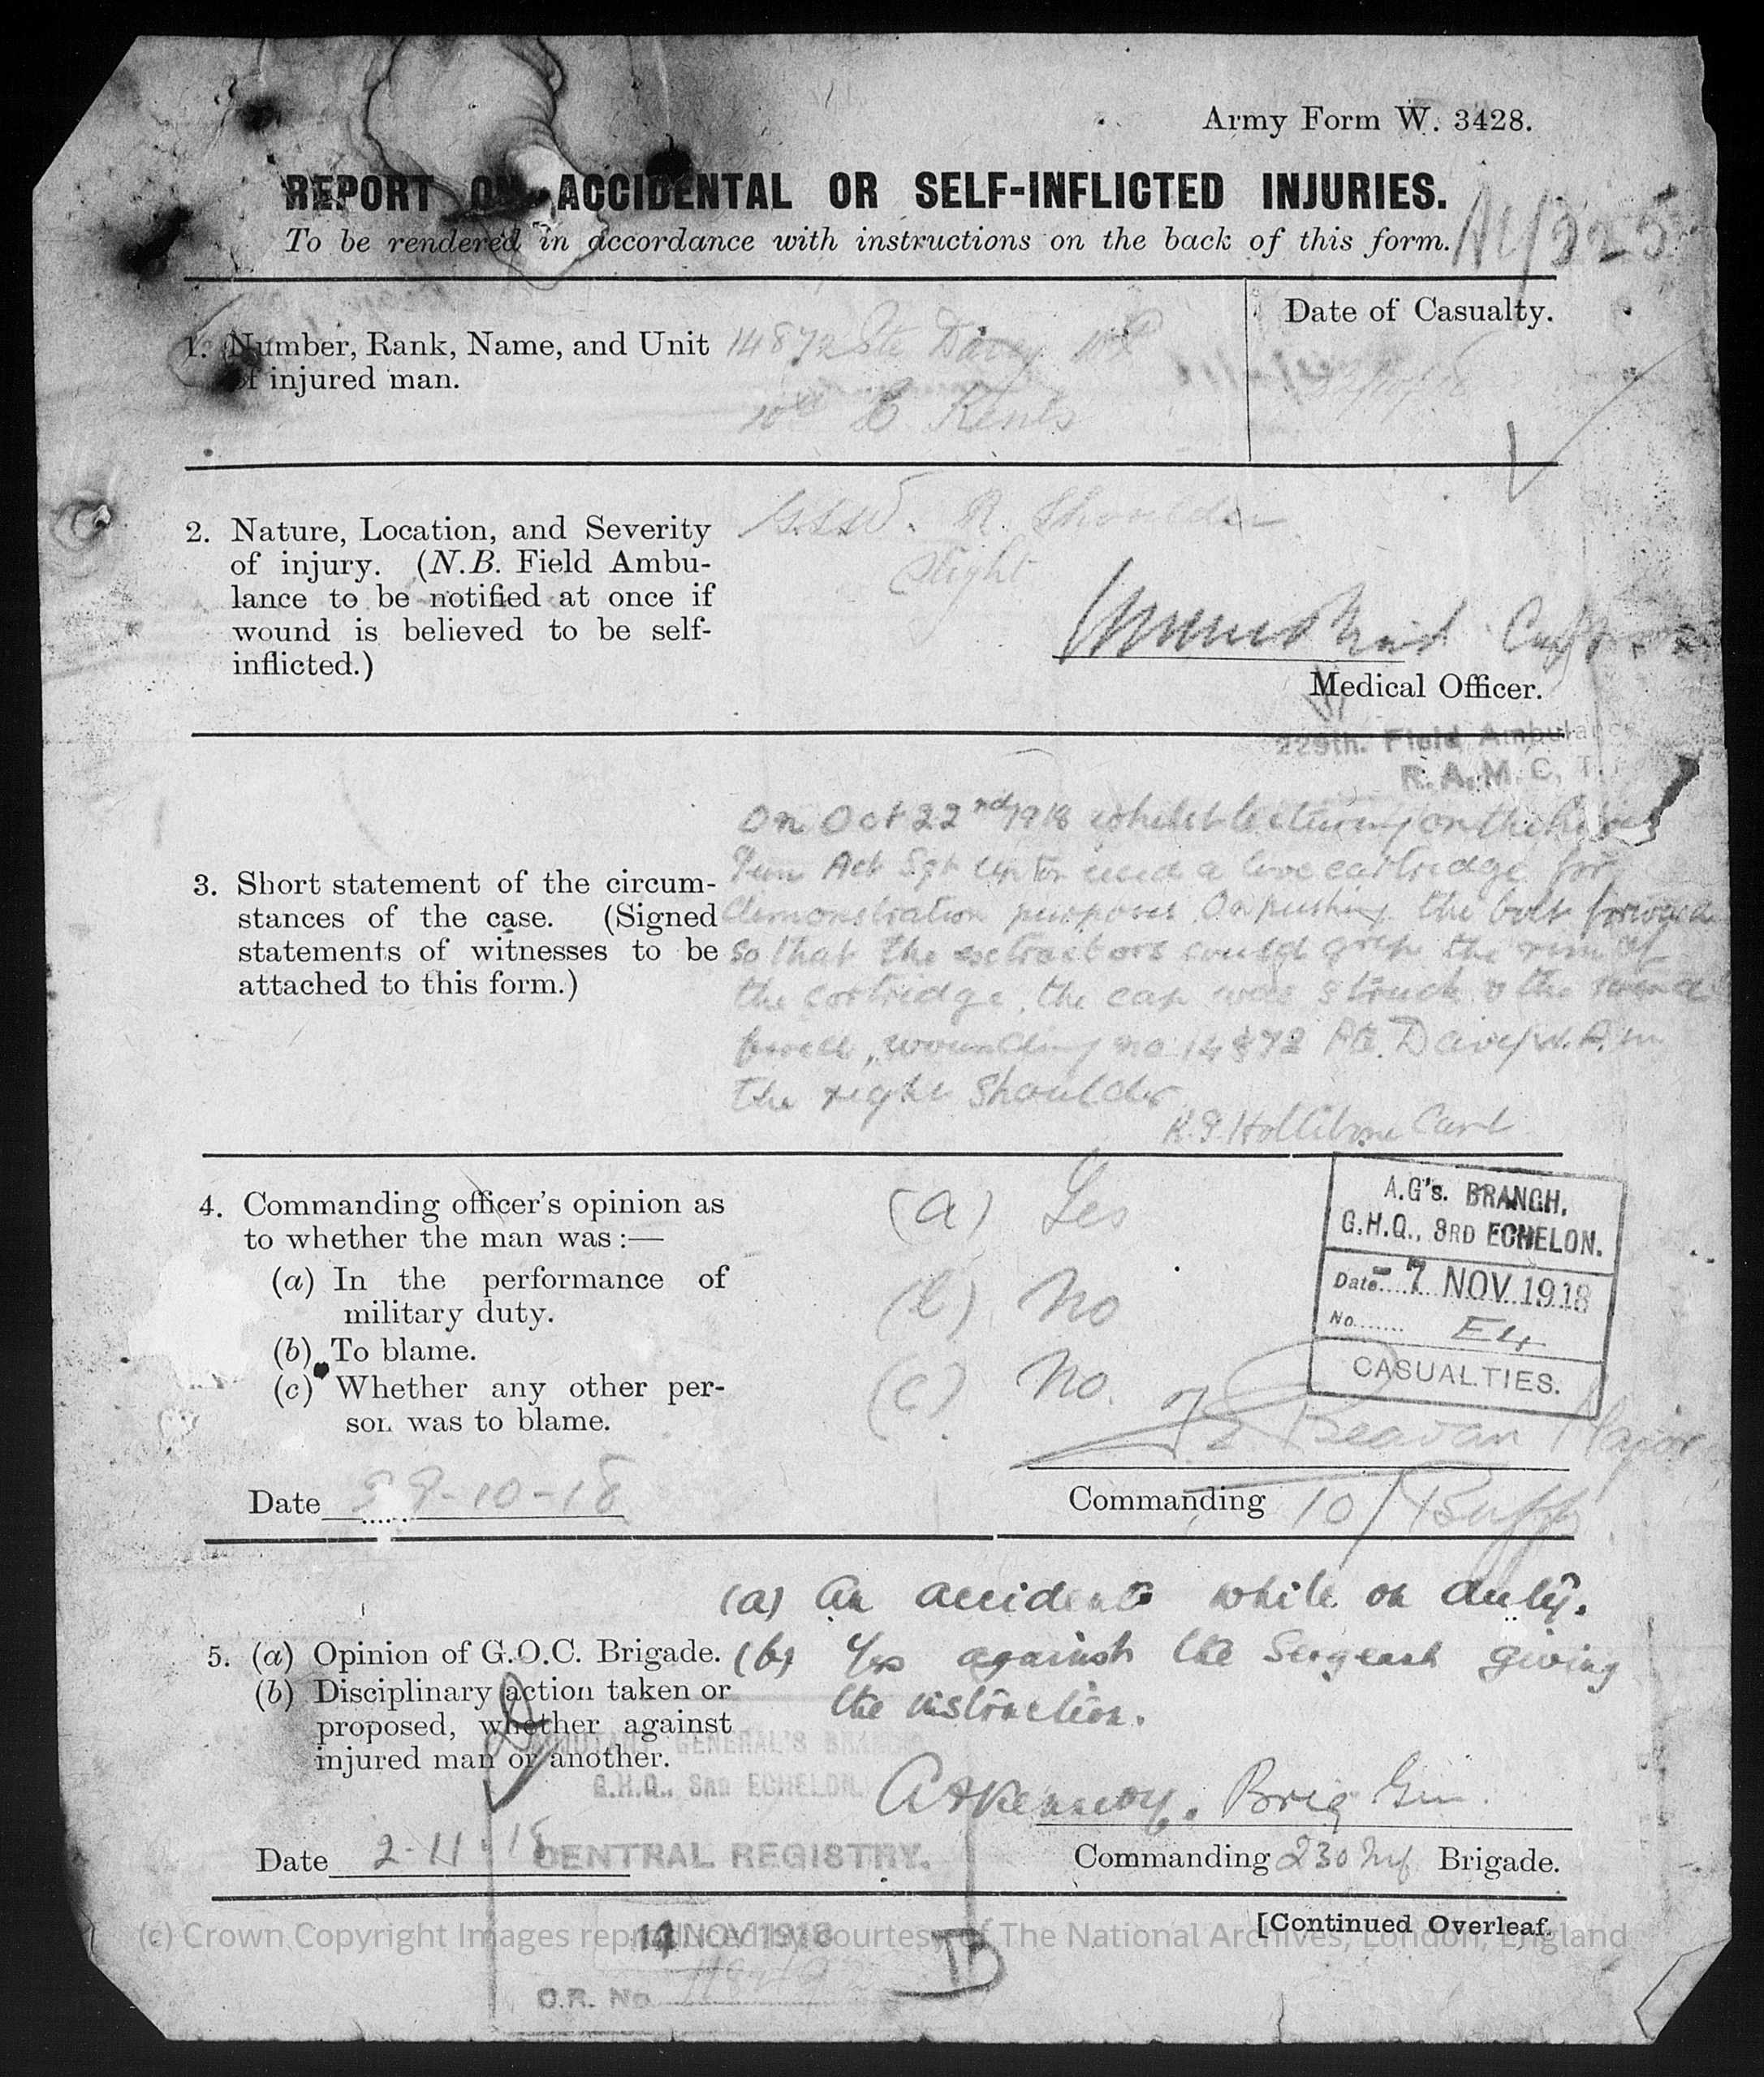 Army Form W. 3428.
REPORT ON ACCIDENTAL OR SELF-INFLICTED INJURIES.
To be rendered in accordance with instructions on the back of this form.
Date of Casualty.
1. Number, Rank, Name, and Unit 14872 Pte Davey
of injured man.
10th E Kents
2. Nature, Location, and Severity
of injury. (N.B. Field Ambu-
lance to be notified at once if
wound is believed to be self-
inflicted.)
R. Shoulder
Slight
Capt
Medical Officer.
229th. Field Ambulance
R.A.M.C, T.
3. Short statement of the circum-
stances of the case. (Signed
statements of witnesses to be
attached to this form.)
On Oct 22nd 1918 whilst lecturing on the
Gun Act Sgt used a live cartridge for
demonstration purposes. On pushing the bolt forward
so that the extractors could grip the rim of
the cartridge, the cap was struck & the round
fired, wounding no 14872 Pte. Davey W. A. in
the right shoulder
Capt
4. Commanding officer's opinion as
to whether the man was :—
(a) In the performance of
military duty.
(b) To blame.
(c) Whether any other per-
son was to blame.
(a) Yes
(b) No
(c) No.
A.G's. BRANCH,
G.H.Q., 3RD ECHELON.
Date - 7 NOV 1918
No. E4
CASUALTIES.
Major
Date 29-10-18
Commanding 10/Buffs
(a) An accident while on duty.
5. (a) Opinion of G.O.C. Brigade.
(b) Yes against the Sergeant giving
the instruction.
(b) Disciplinary action taken or
proposed, whether against
injured man or another.
ADJUTANT GENERAL'S BRANCH
G.H.Q., 3RD ECHELON.
Brig Gen.
Date 2-11-18
CENTRAL REGISTRY.
Commanding 230 Inf Brigade.
[Continued Overleaf.
(c) Crown Copyright Images reproduced by courtesy of The National Archives, London, England
NOV 1918
C.R. No